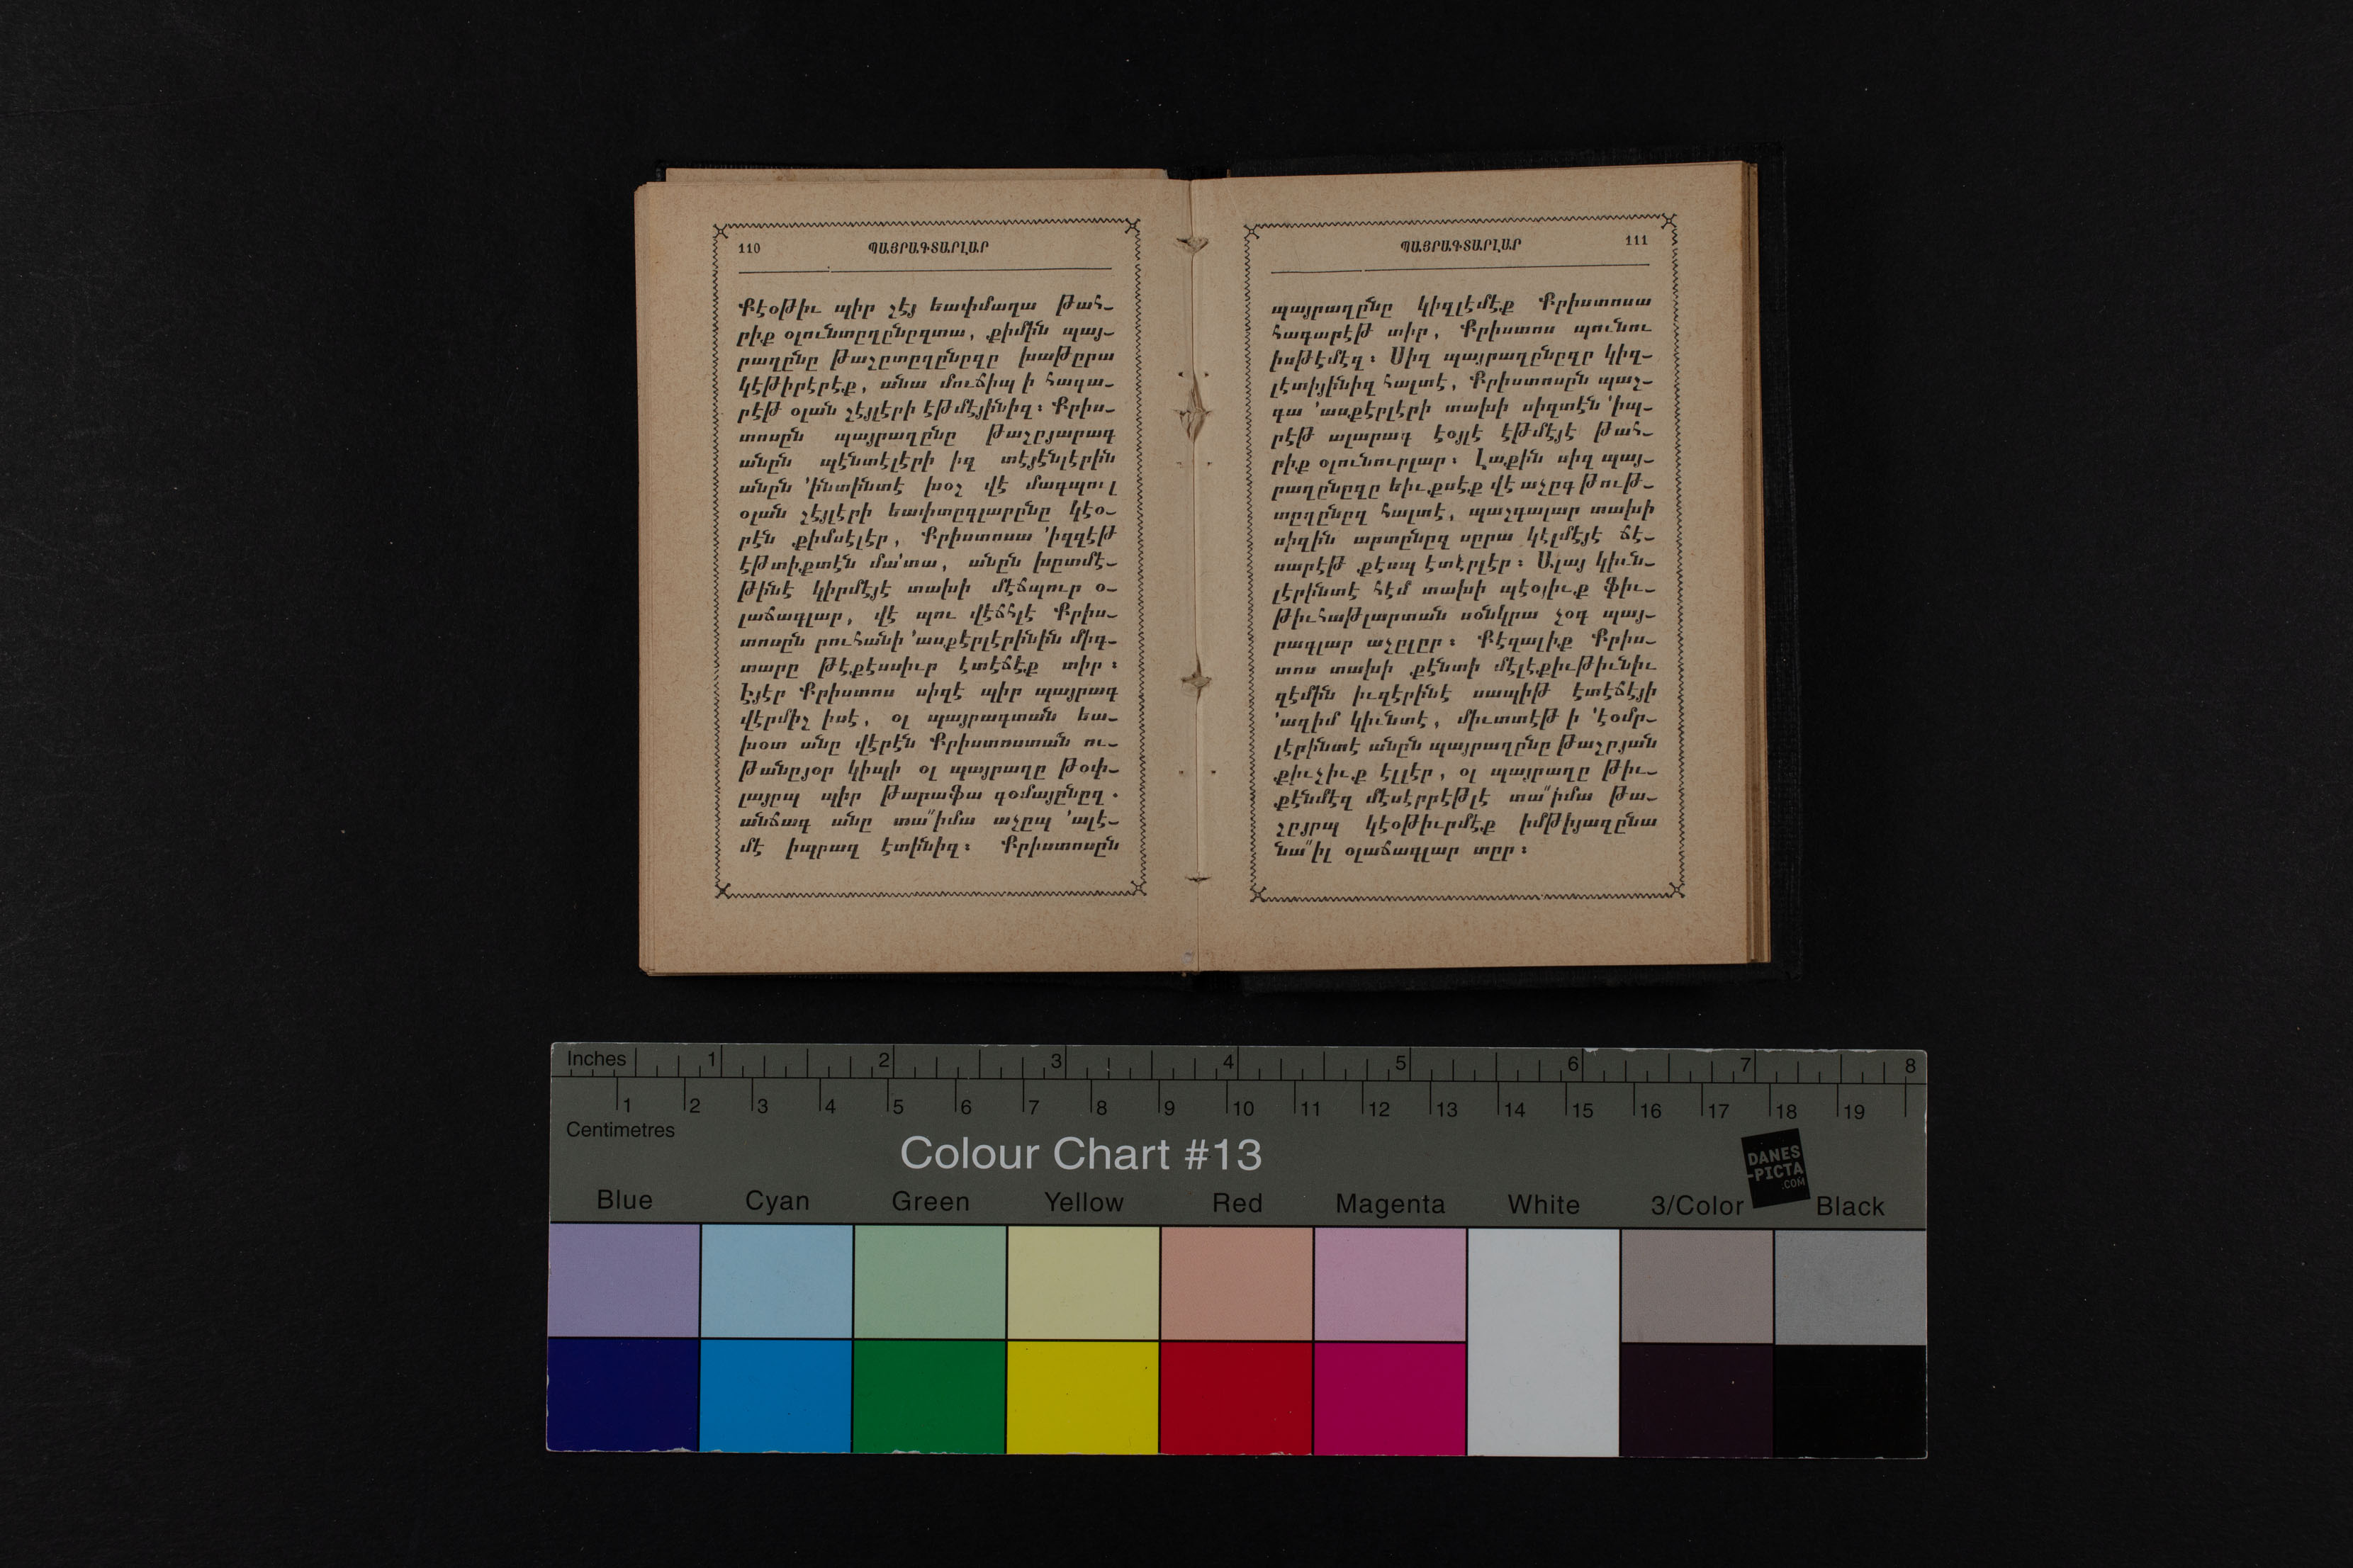 110 ՊԱՅՐԱԳՏԱՐԼԱՐ
Քէօթիւ պիր շէյ եափմաղա թահ-
րիք օլունտըղընըզտա, քիմին պայ-
րաղընը թաշըտըղընըզը խաթըրա
կէթիրէրէք, անա մուճիպ ի հագա-
րէթ օլան շէյլէրի էթմէյինիզ։ Քրիս-
տոսըն պայրաղընը թաշըյարագ
անըն պէնտէլէրի իզ տէյէնլէրին
անըն ՚ինտինտէ խօշ վէ մագպուլ
օլան շէյլէրի եափտըգլարընը կէօ-
րէն քիմսէլէր, Քրիստոսա ՚իզզէթ
էթտիքտէն մա՚տա, անըն խըտմէ-
թինէ կիրմէյէ տախի մէճպուր օ-
լաճագլար, վէ պու վէճհլէ Քրիս-
տոսըն րուհանի ՚ասքէրլէրինին միգ-
տարը թէքէսսիւր էտէճէք տիր։
Էյէր Քրիստոս սիզէ պիր պայրագ
վէրմիշ իսէ, օլ պայրագտան եա-
խօտ անը վէրէն Քրիստոստան ու-
թանըյօր կիպի օլ պայրաղը թօփ-
լայըպ պիր թարաֆա գօմայընըզ.
անճագ անը տա՚՚իմա աչըպ ՚ալէ-
մէ իպրազ էտինիզ։ Քրիստոսըն
ՊԱՅՐԱԳՏԱՐԼԱՐ 111
պայրաղընը կիզլէմէք Քրիստոսա
հագարէթ տիր, Քրիստոս պունու
իսթէմէզ։ Սիզ պայրաղընըզը կիզ-
լէտիյինիզ հալտէ, Քրիստոսըն պաշ-
գա ՚ասքէրլէրի տախի սիզտէն ՚իպ-
րէթ ալարագ էօյլէ էթմէյէ թահ-
րիք օլունուրլար։ Լաքին սիզ պայ-
րաղընըզը եիւքսէք վէ աչըգ թութ-
տըղընըզ հալտէ, պաշգալար տախի
սիզին արտընըզ սըրա կէլմէյէ ճէ-
սարէթ քէսպ էտէրլէր։ Ալայ կիւն-
լէրինտէ հէմ տախի պէօյիւք ֆիւ-
թիւհաթլարտան սօնկրա չօգ պայ-
րագլար աչըլըր։ Քէզալիք Քրիս-
տոս տախի քէնտի մէլէքիւթիւնիւ
զէմին իւզէրինէ սապիթ էտէճէյի
՚ազիմ կիւնտէ, միւտտէթ ի ՚էօմր-
լէրինտէ անըն պայրաղընը թաշըյան
քիւչիւք էլլէր, օլ պայրաղը թիւ-
քէնմէզ մէսէրրէթլէ տա՚՚իմա թա-
շըյըպ կէօթիւրմէք իմթիյազընա
նա՚՚իլ օլաճագլար տըր։
Inches 1 2 3 4 5 6 7 8
1 2 3 4 5 6 7 8 9 10 11 12 13 14 15 16 17 18 19
Centimetres
Colour Chart #13
DANES
-PICTA
.COM
Blue Cyan Green Yellow Red Magenta White 3/Color Black